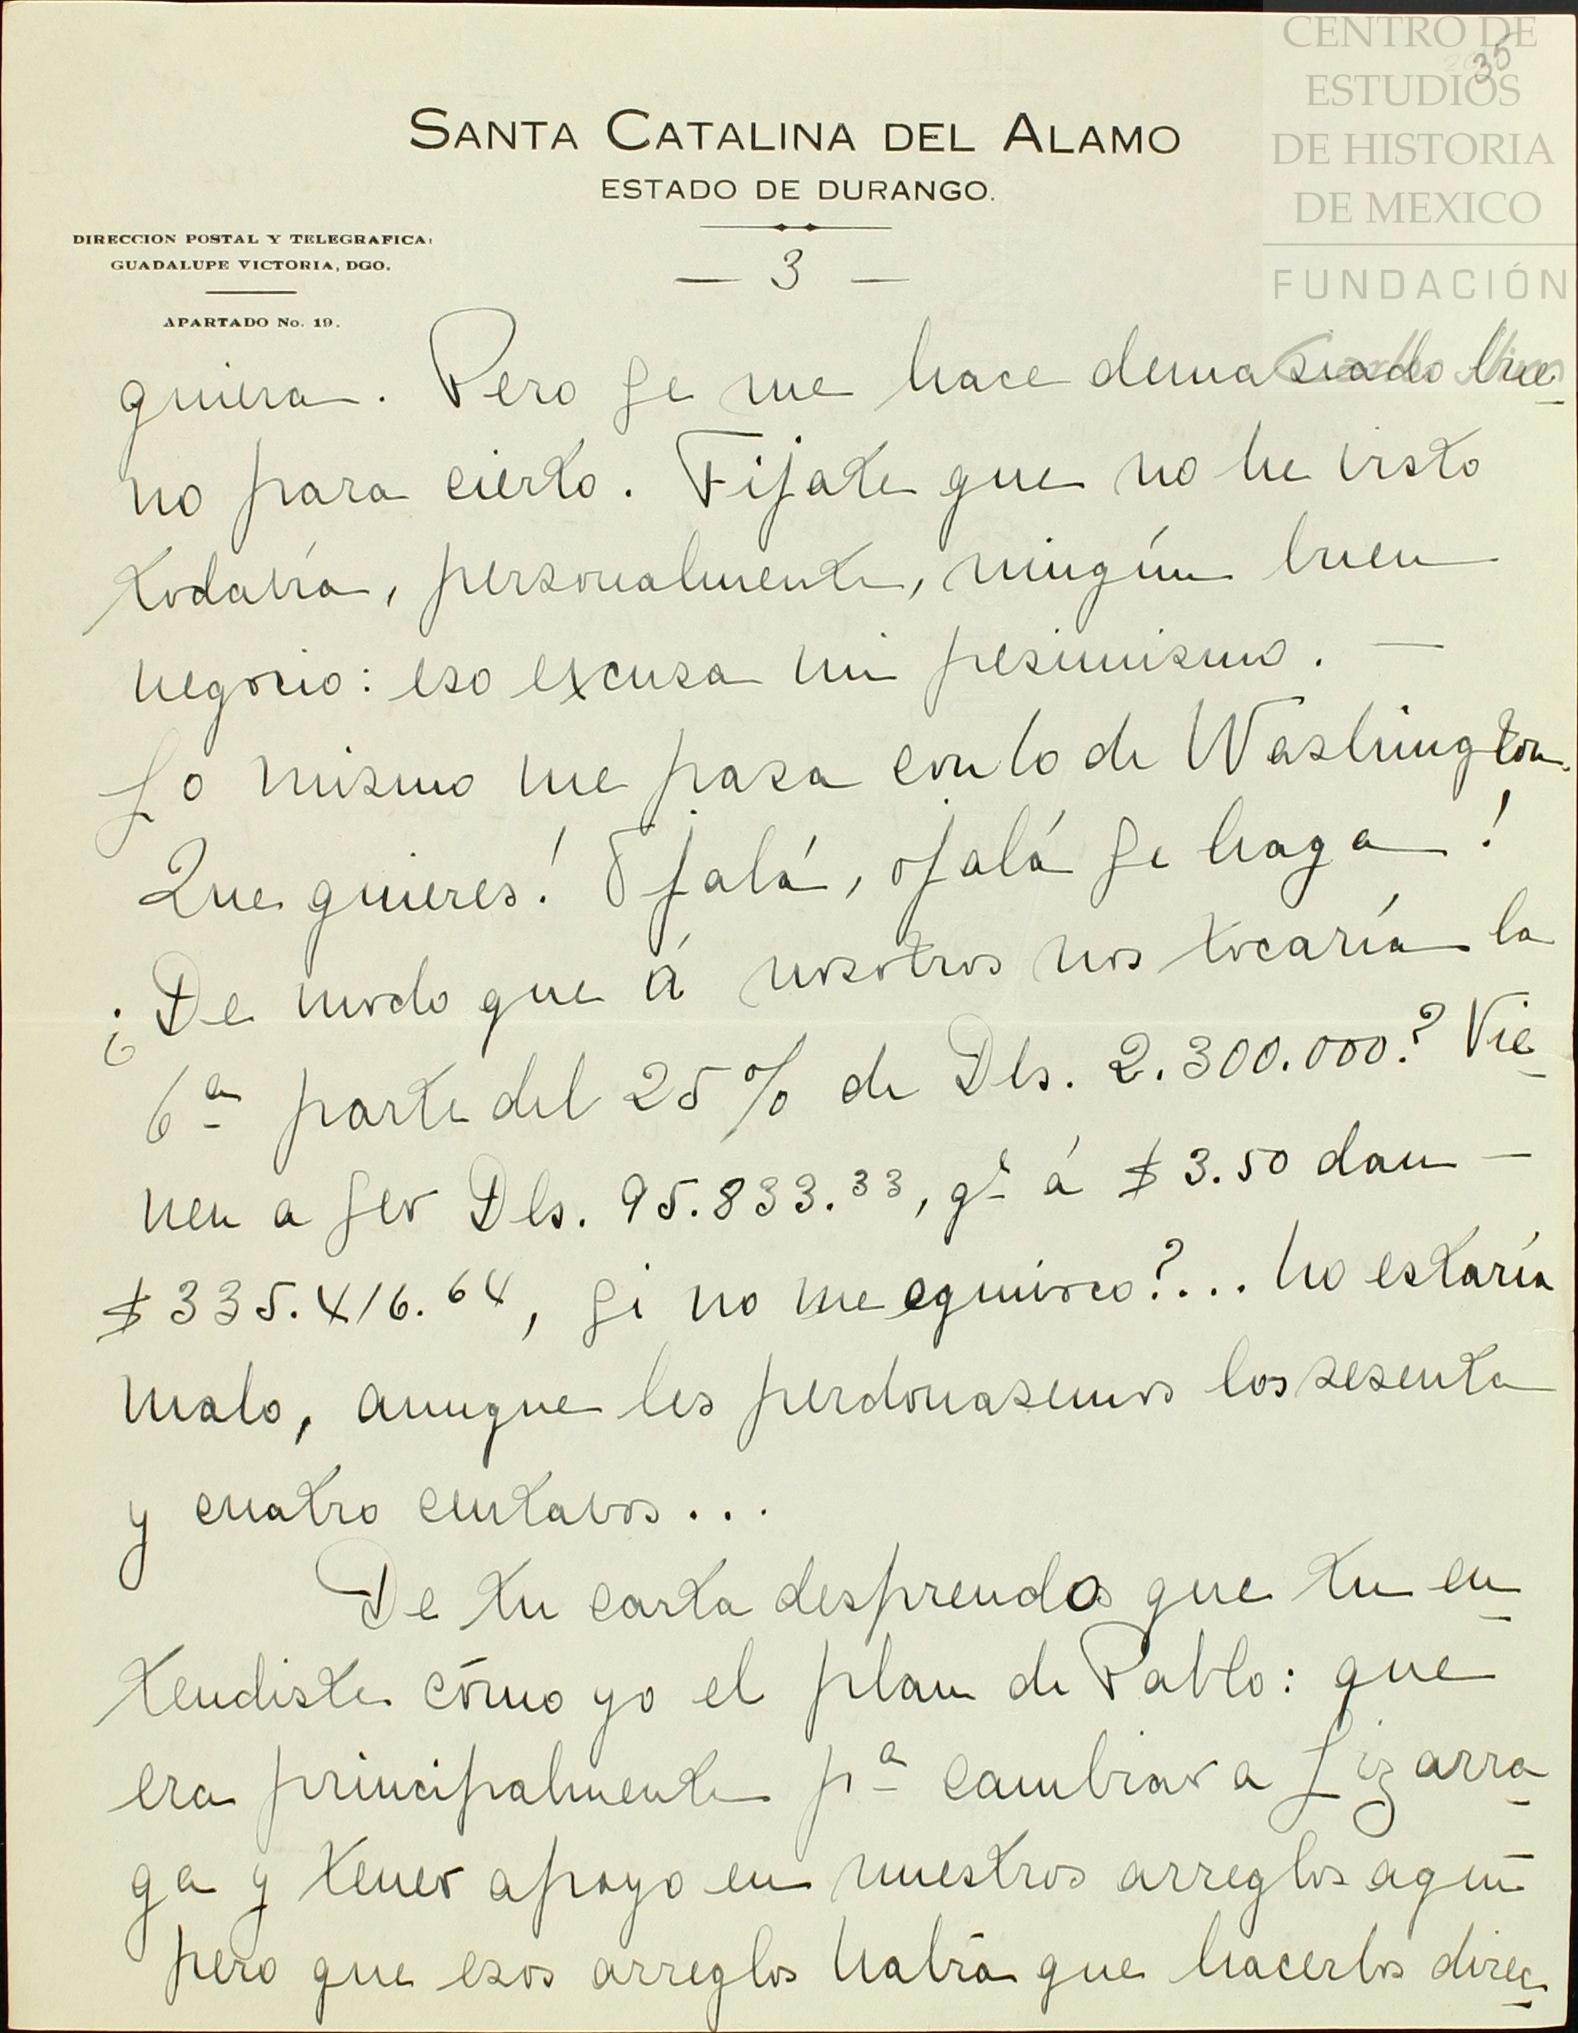 CENTRO DE
ESTUDIOS
DE HISTORIA
DE MEXICO
FUNDACIÓN
35
SANTA CATALINA DEL ALAMO
ESTADO DE DURANGO.
DIRECCION POSTAL Y TELEGRAFICA:
GUADALUPE VICTORIA, DGO.
APARTADO No. 19.
— 3 —
quiera. Pero se me hace demasiado bue-
no para cierto. Fijate que no he visto
todavía, personalmente, ningún buen
negocio: eso excusa mi pesimismo. —
Lo mismo me pasa con lo de Washington.
Que quieres! Ojalá, ojalá se haga!
¿De modo que á nosotros nos tocaría la
6ª parte del 25% de Dls. 2.300.000.? Vie-
nen a ser Dls. 95.833.33, qe á $3.50 dan —
$335.416.64, si no me equivoco?... No estaría
malo, aunque les perdonasemos los sesenta
y cuatro centavos...
De tu carta desprendo que tu en-
tendiste cómo yo el plan de Pablo: que
era principalmente pª cambiar a Lizarra-
ga y tener apoyo en nuestros arreglos aquí
pero que esos arreglos habrá que hacerlos direc-